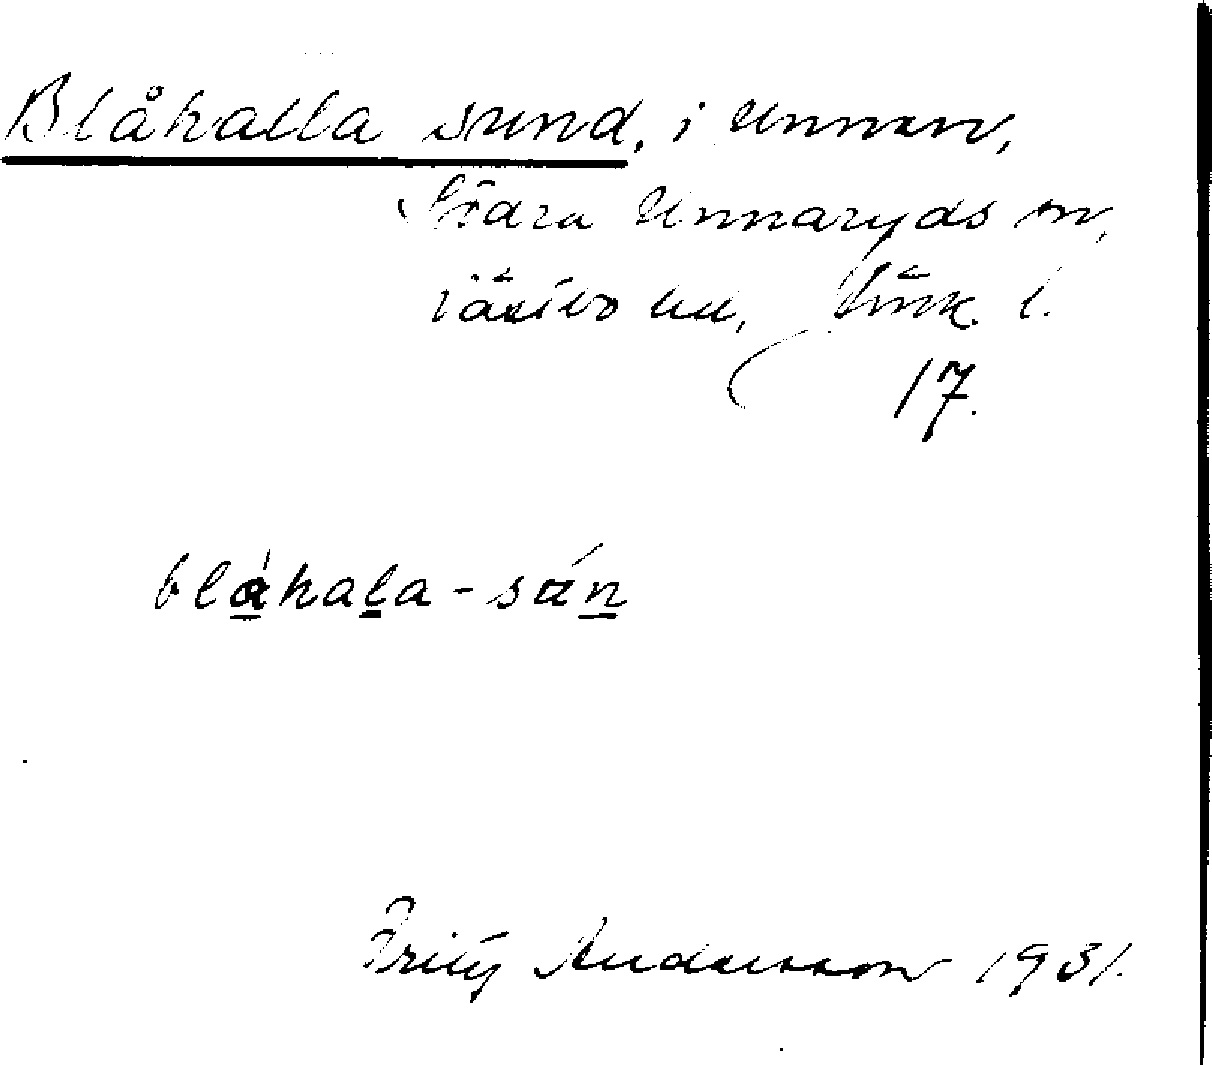 Blåhalla sund, i Unnen,
Södra Unnaryds sn,
Västbo hd, Jönk. l.
17.
blåhala-sán
Fritz Andersson 1931.